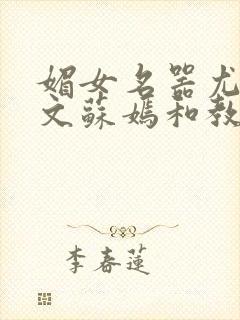 媚女名器尤
文蘇媽和教
李春蓮